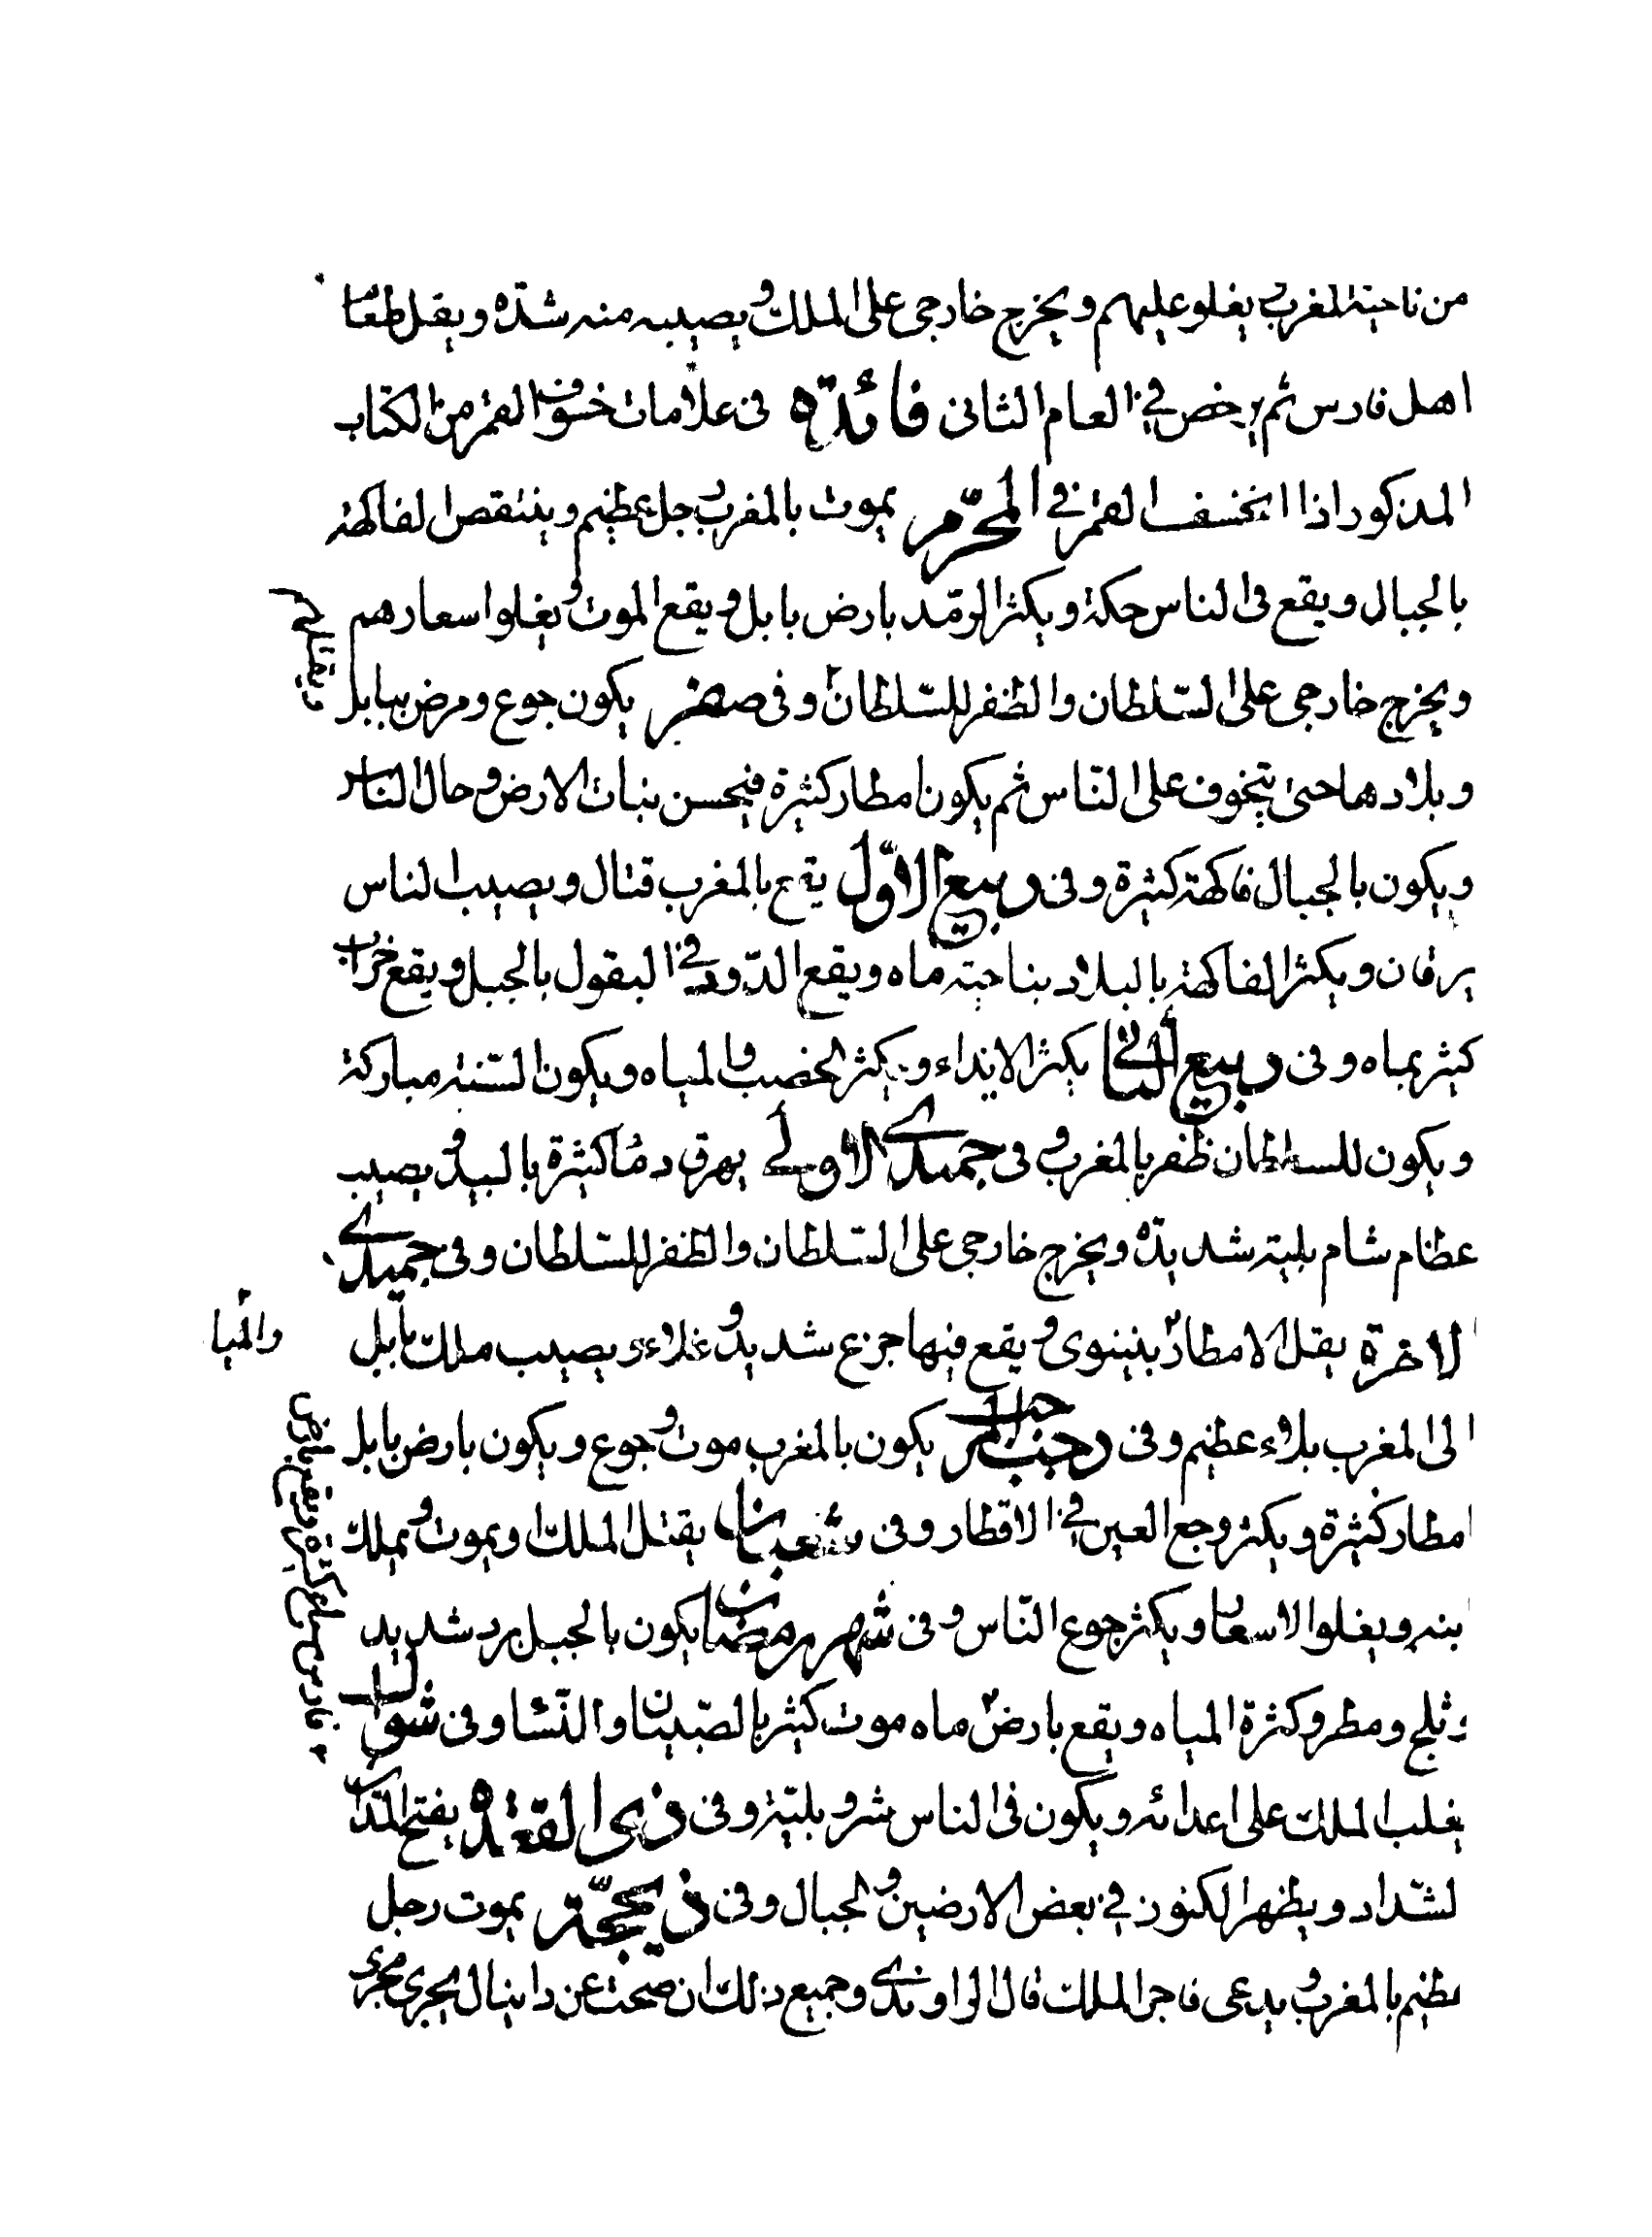 من ناحية المغرب يغلو عليهم ويخرج خارجي على الملك ويصيبه منه شدّة ويقل طعام
اهل فارس ثم يرخص في العام الثانى فائدة فى علامات خسوف القمر من الكتاب
المذكور اذا انخسف القمر في المحرّم يموت بالمغرب رجل عظيم وينتقص الفاكهة
بالجبال ويقع فى الناس حكة ويكثر الرمد بارض بابل ويقع الموت ويغلوا سعارهم
ويخرج خارجى على السّلطان والظفر للسّلطان وفى صفر يكون جوع ومرض ببابل
وبلادها حتى يتخوف على النّاس ثم يكون امطار كثيرة فيحسن نبات الارض وحال الناس
ويكون بالجبال فاكهة كثيرة وفى ربيع الاوّل يقع بالمغرب قتال ويصيب الناس
يرقان ويكثر الفاكهة بالبلاد بناحية ماه ويقع الدّود في البقول بالجبل ويقع خراب
كثير بماه وفى ربيع الثانى يكثر الانداء ويكثر الخصب والمياه ويكون السّنة مباركة
ويكون للسلطان ظفر بالمغرب وفى جميدى الاولى يهرق دما كثيرة بالبيد ويصيب
عظام شام بلية شديدة ويخرج خارجى على السّلطان والظفر للسّلطان وفى جميدى
الاخرة يقل الامطار بنينوى ويقع فيها جزع شديد وغلاء ويصيب ملك بابل
والمياه
الى المغرب بلاء عظيم وفى رجب المرجب يكون بالمغرب موت وجوع ويكون بارض بابل
امطار كثيرة ويكثر وجع العين في الاقطار وفى شعبان يقتل الملك او يموت ويملك
ابنه ويغلوا الاسعار ويكثر جوع النّاس وفى شهر رمضان يكون بالجبل برد شديد
وثلج ومطر وكثرة المياه ويقع بارض ماه موت كثير بالصّبيان والنّسا وفى شوال
يغلب الملك على اعدائه ويكون فى الناس شر وبليّة وفى ذى القعدة يفتح المداين
لشّداد ويظهر الكنوز في بعض الارضين والجبال وفى ذيحجّة يموت رجل
عظيم بالمغرب ويدعى فاجر الملك قال الراوندى وجميع ذلك ان صحت عن دانيال يجرى مجرى